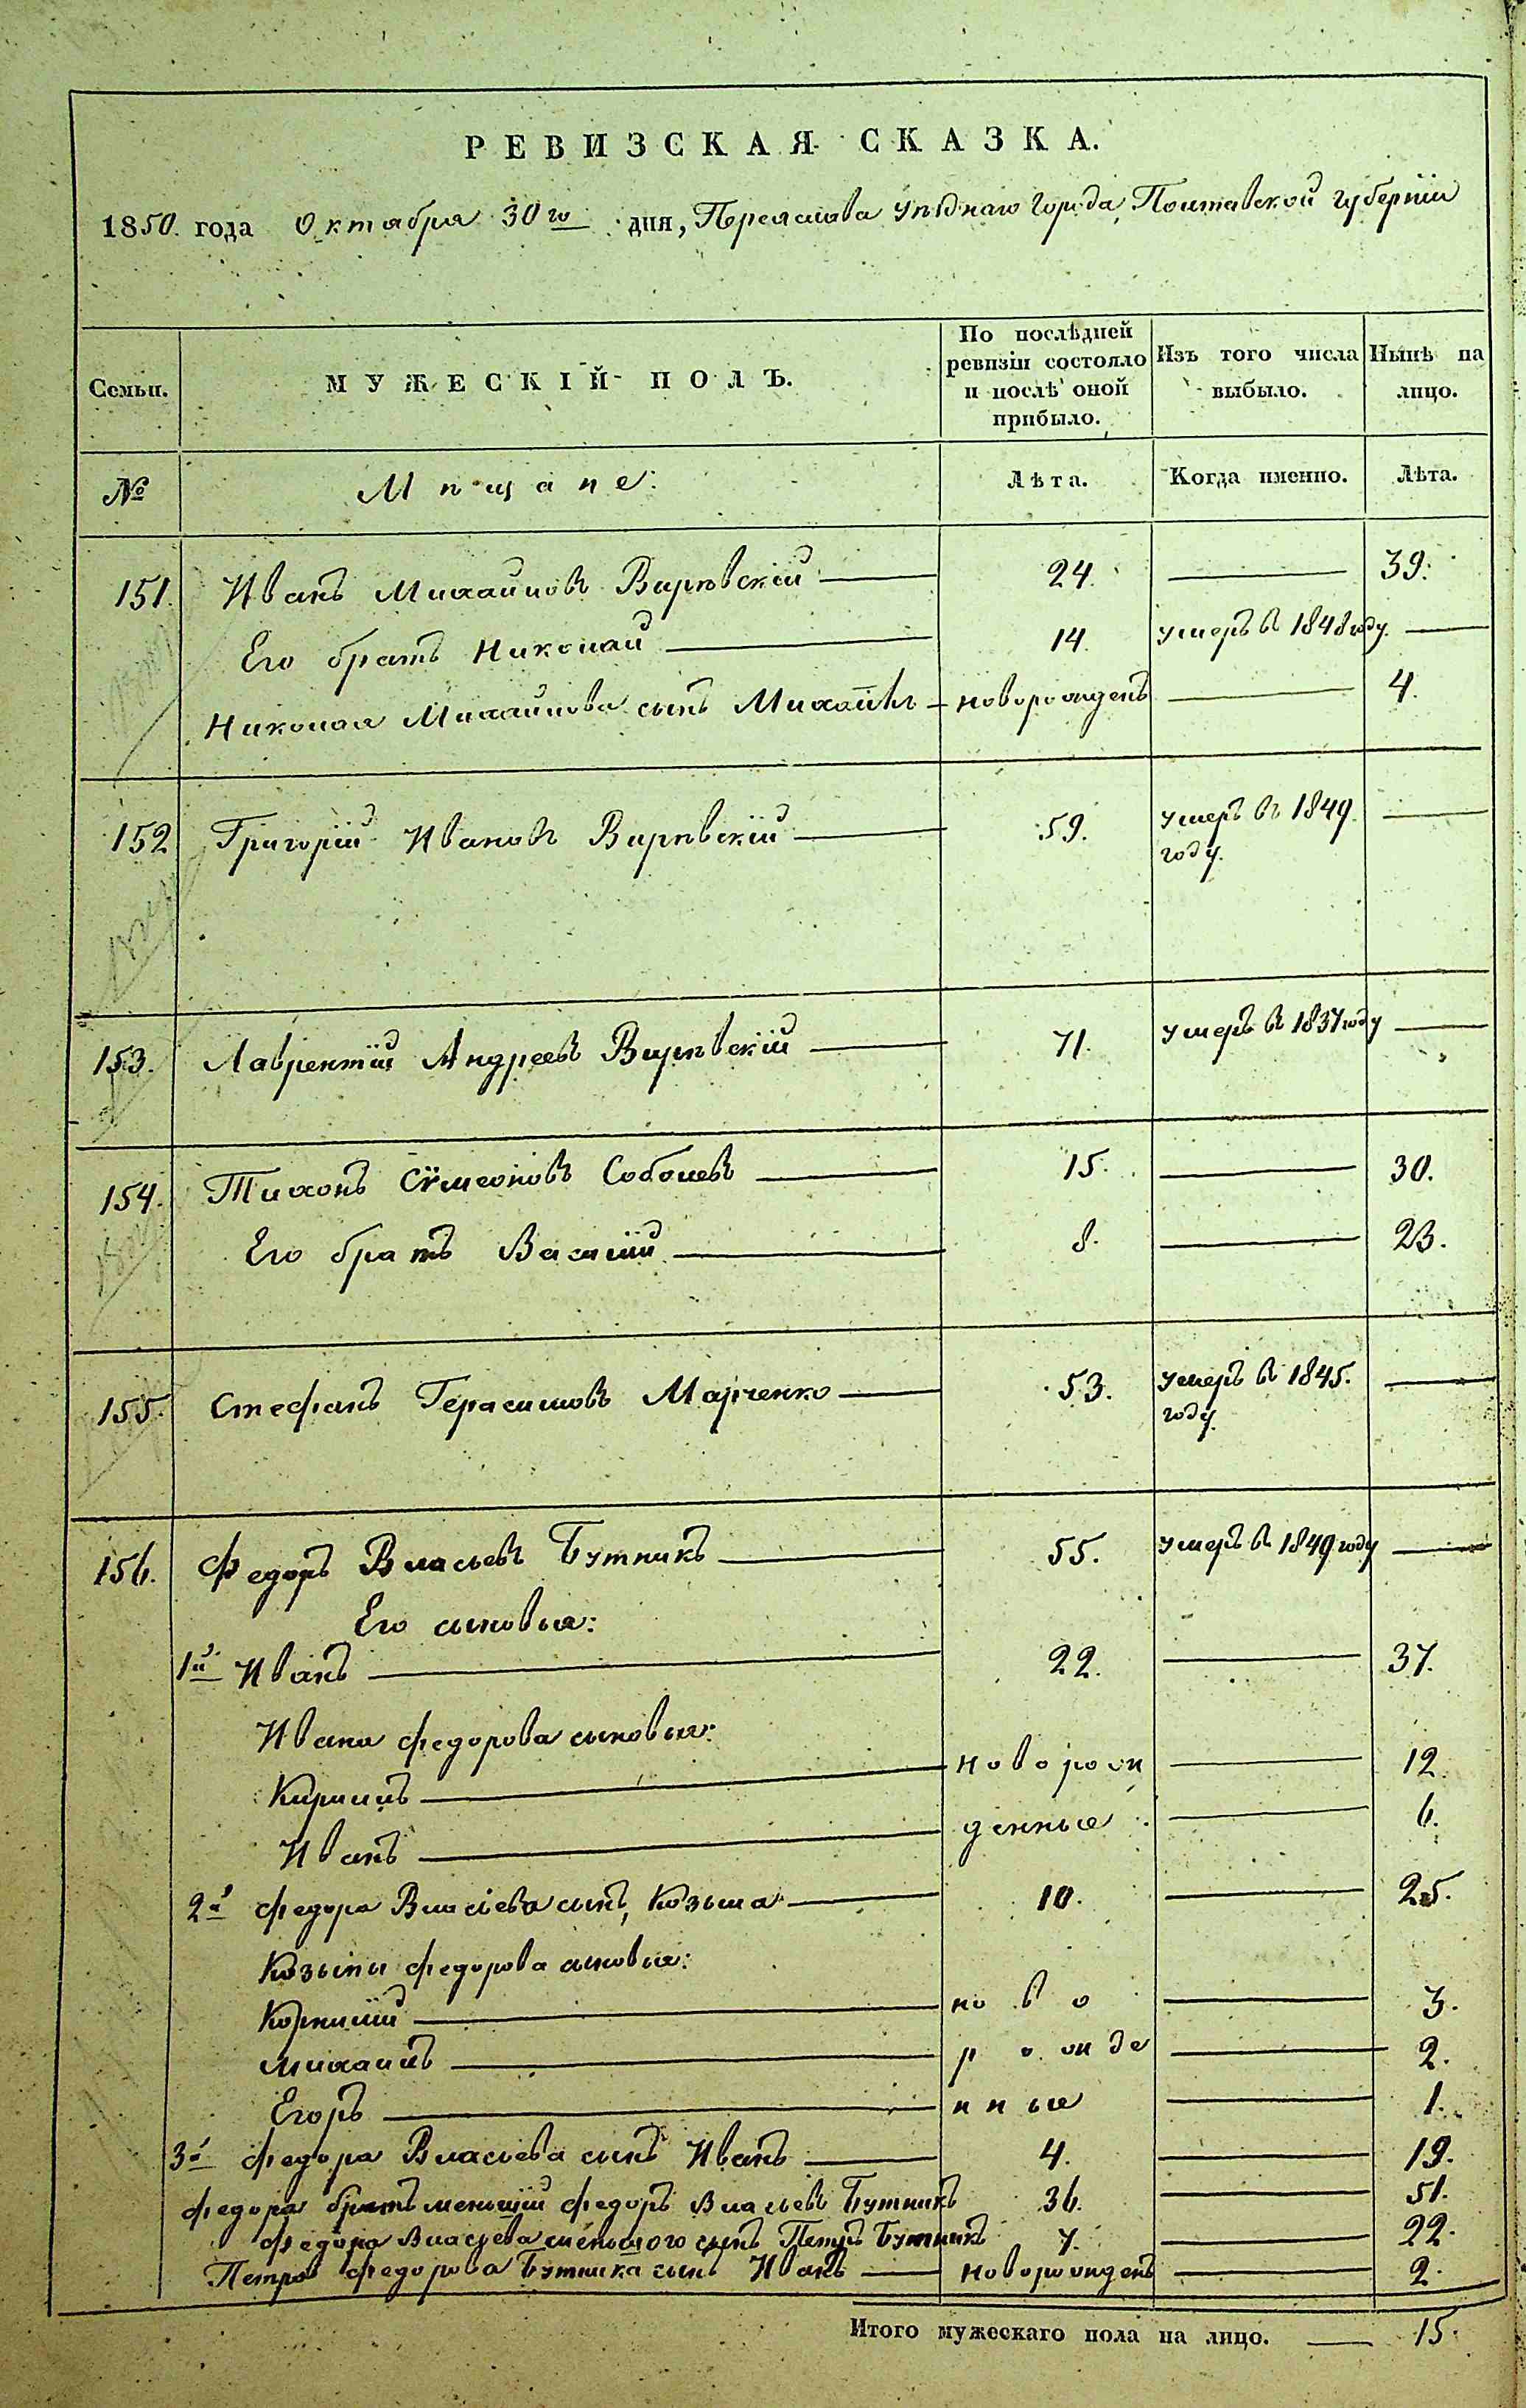 РЕВИЗСКАЯ СКАЗКА.
1850. года Октября 30го дня, Переяслова уѣзднаго города, Полтавской губерніи
Семьи.
МУЖЕСКІЙ ПОЛЪ.
По послѣдней
ревизіи состояло
и послѣ оной
прибыло.
Изъ того числа
выбыло.
Нынѣ на
лицо.
№
Мѣщане:
Лѣта.
Когда именно.
Лѣта.
151. Иванъ Михайловъ Вирѣвскій 24. 39.
Его братъ Николай 14. умеръ въ 1848 году.
Николая Михайлова сынъ Михаилъ новорожденъ 4.
152 Григорій Ивановъ Вирѣвскій 59. умеръ въ 1849.
году.
153. Лаврентій Андреевъ Вирѣвскій 71. умеръ въ 1837 году
154. Тихонъ Сѵмеоновъ Соболевъ 15. 30.
Его братъ Василій 8. 23.
155. Стефанъ Герасимовъ Марченко 53. умеръ въ 1845.
году.
156. Федоръ Власьевъ Бутникъ 55. умеръ въ 1849 году
Его сыновья:
1й Иванъ 22. 37.
Ивана Федорова сыновья:
Кирилъ новорож 12.
Иванъ денные 6.
2й Федора Власьева сынъ, Козьма 10. 25.
Козьмы Федорова сыновья:
Корнилій ново 3.
Михаилъ рожде 2.
Егоръ нные 1.
3й Федора Власьева сынъ Иванъ 4. 19.
Федора братъ меньшій Федоръ Власьевъ Бутникъ 36. 51.
Федора Власьева меньшого сынъ Петръ Бутникъ 7. 22.
Петра Федорова Бутника сынъ Иванъ новорожденъ 2.
Итого мужескаго пола на лицо. 15.